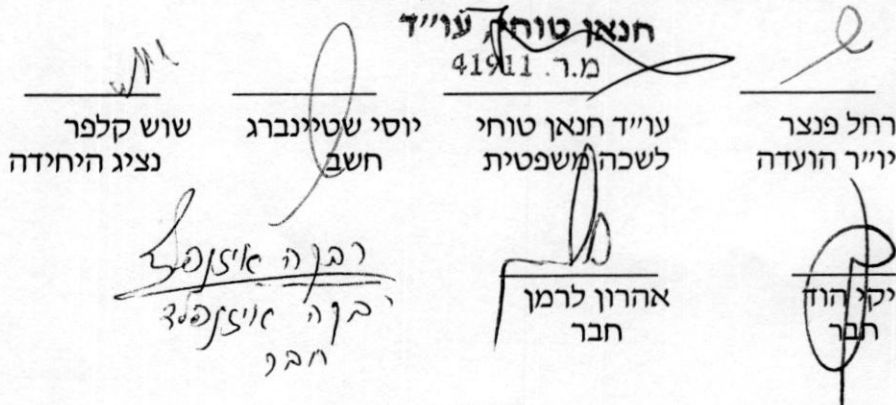 חנאן טוחי, עו״ד
מ.ר. 41911
רחל פנצר
יו״ר הועדה
עו״ד חנאן טוחי
לשכה משפטית
יוסי שטיינברג
חשב
שוש קלפר
נציג היחידה
יקי הוד
חבר
אהרון לרמן
חבר
רבקה איזנפלד
רבקה איזנפלד
חבר